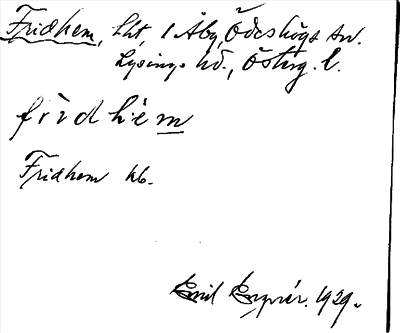 Fridhem, lht, 1 Åby, Ödeshögs sn.
Lysings hd., Östrg. l.
fri̇̀d he̊m
Fridhem kb.
Emil 1929.